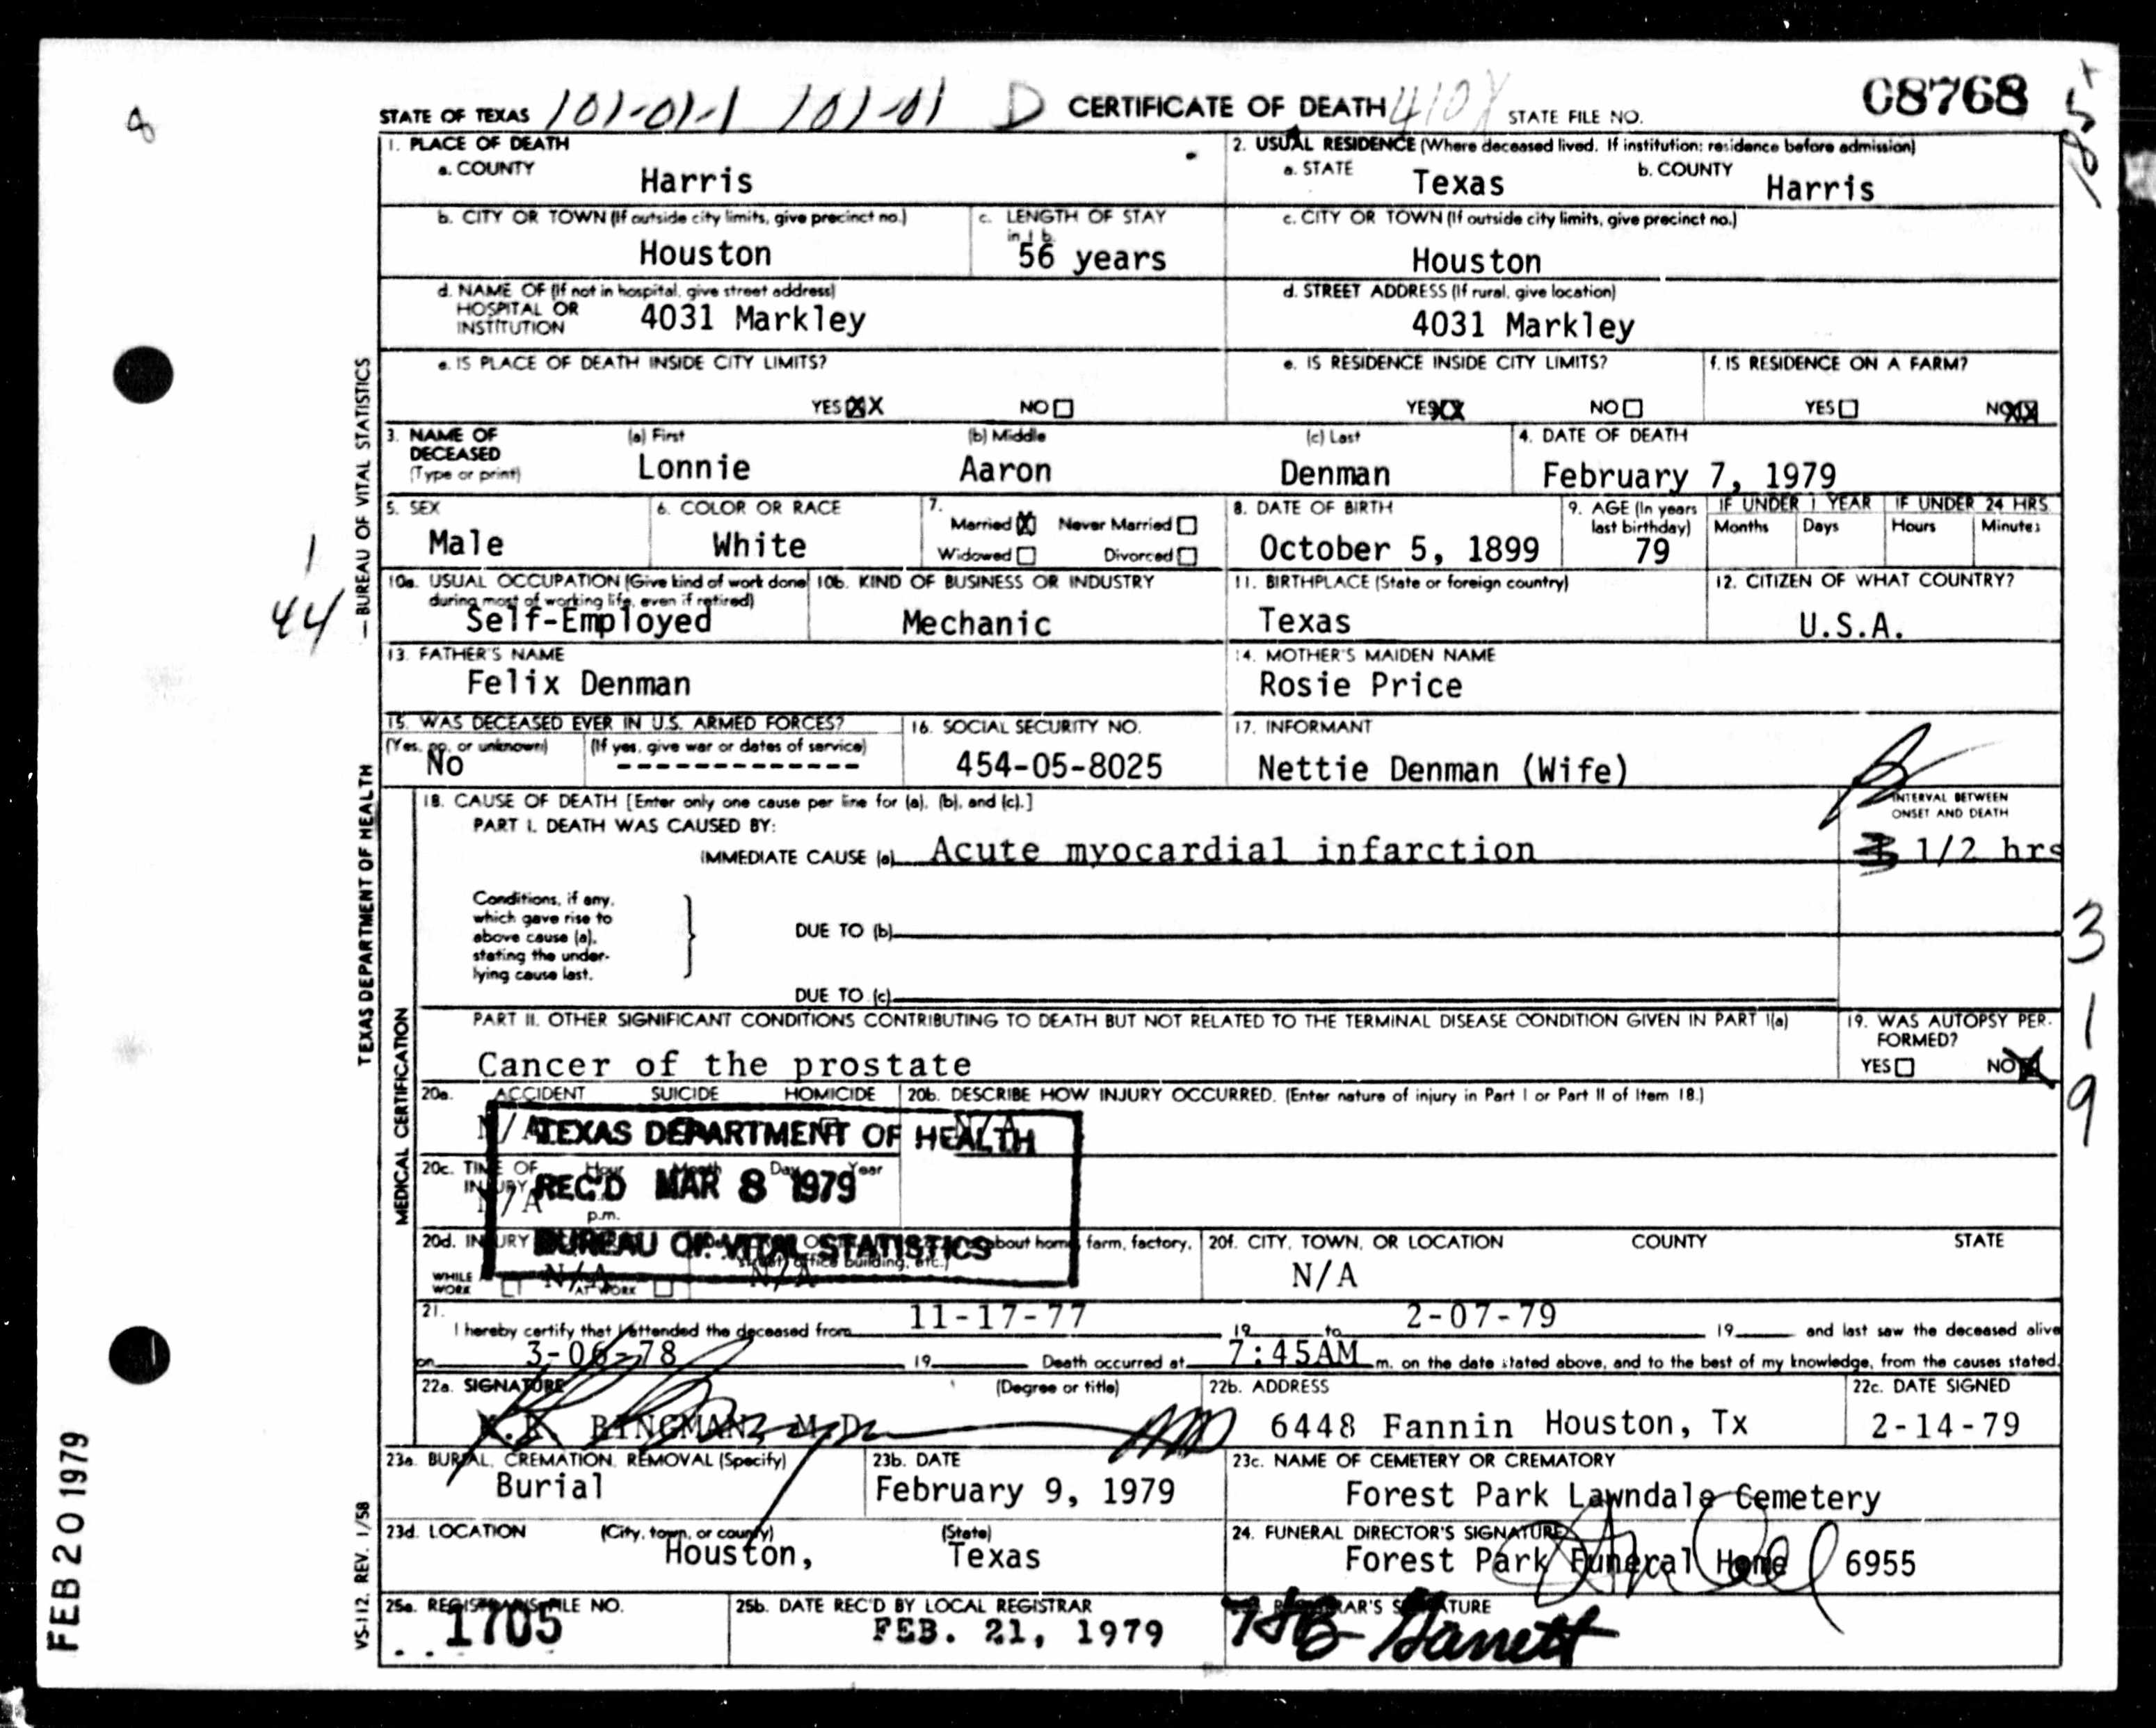 STATE OF TEXAS 101-01-1 101-01 D CERTIFICATE OF DEATH 410X STATE FILE NO. 08768
1. PLACE OF DEATH
a. COUNTY Harris
2. USUAL RESIDENCE (Where deceased lived. If institution: residence before admission)
a. STATE Texas b. COUNTY Harris
b. CITY OR TOWN (If outside city limits, give precinct no.) Houston
c. LENGTH OF STAY in 1 b. 56 years
c. CITY OR TOWN (If outside city limits, give precinct no.) Houston
d. NAME OF (If not in hospital, give street address) HOSPITAL OR INSTITUTION 4031 Markley
d. STREET ADDRESS (If rural, give location) 4031 Markley
e. IS PLACE OF DEATH INSIDE CITY LIMITS? YES XX NO
e. IS RESIDENCE INSIDE CITY LIMITS? YES XX NO
f. IS RESIDENCE ON A FARM? YES NO XX
3. NAME OF DECEASED (Type or print) (a) First Lonnie (b) Middle Aaron (c) Last Denman
4. DATE OF DEATH February 7, 1979
5. SEX Male
6. COLOR OR RACE White
7. Married X Never Married Widowed Divorced
8. DATE OF BIRTH October 5, 1899
9. AGE (In years last birthday) 79
IF UNDER 1 YEAR Months Days IF UNDER 24 HRS Hours Minutes
10a. USUAL OCCUPATION (Give kind of work done during most of working life, even if retired) Self-Employed
10b. KIND OF BUSINESS OR INDUSTRY Mechanic
11. BIRTHPLACE (State or foreign country) Texas
12. CITIZEN OF WHAT COUNTRY? U.S.A.
13. FATHER'S NAME Felix Denman
14. MOTHER'S MAIDEN NAME Rosie Price
15. WAS DECEASED EVER IN U.S. ARMED FORCES? (Yes, no, or unknown) No (If yes, give war or dates of service) -------------
16. SOCIAL SECURITY NO. 454-05-8025
17. INFORMANT Nettie Denman (Wife)
18. CAUSE OF DEATH [Enter only one cause per line for (a), (b), and (c).]
PART I. DEATH WAS CAUSED BY:
IMMEDIATE CAUSE (a) Acute myocardial infarction
INTERVAL BETWEEN ONSET AND DEATH 3 1/2 hrs
Conditions, if any, which gave rise to above cause (a), stating the under-lying cause last.
DUE TO (b)
DUE TO (c)
PART II. OTHER SIGNIFICANT CONDITIONS CONTRIBUTING TO DEATH BUT NOT RELATED TO THE TERMINAL DISEASE CONDITION GIVEN IN PART I(a)
Cancer of the prostate
19. WAS AUTOPSY PER-FORMED? YES NO X
20a. ACCIDENT SUICIDE HOMICIDE N/A
20b. DESCRIBE HOW INJURY OCCURRED. (Enter nature of injury in Part I or Part II of Item 18.) N/A
TEXAS DEPARTMENT OF HEALTH
REC'D MAR 8 1979
BUREAU OF VITAL STATISTICS
20c. TIME OF INJURY Hour Month Day Year p.m. N/A
20d. INJURY WHILE WORK AT WORK N/A
about home, farm, factory, street, office building, etc.) N/A
20f. CITY, TOWN, OR LOCATION COUNTY STATE N/A
21. I hereby certify that I attended the deceased from 11-17-77 19 to 2-07-79 19 and last saw the deceased alive
on 3-06-78 19 Death occurred at 7:45AM m. on the date stated above, and to the best of my knowledge, from the causes stated.
22a. SIGNATURE (Degree or title) BINGMAN, M.D. MD
22b. ADDRESS 6448 Fannin Houston, Tx
22c. DATE SIGNED 2-14-79
23a. BURIAL, CREMATION, REMOVAL (Specify) Burial
23b. DATE February 9, 1979
23c. NAME OF CEMETERY OR CREMATORY Forest Park Lawndale Cemetery
23d. LOCATION (City, town, or county) Houston, (State) Texas
24. FUNERAL DIRECTOR'S SIGNATURE Forest Park Funeral Home 6955
25a. REGISTRAR'S FILE NO. 1705
25b. DATE REC'D BY LOCAL REGISTRAR FEB. 21, 1979
REGISTRAR'S SIGNATURE HB Garrett
TEXAS DEPARTMENT OF HEALTH —BUREAU OF VITAL STATISTICS
MEDICAL CERTIFICATION
VS-112. REV. 1/58
FEB 20 1979
8
1
44
3
1
9